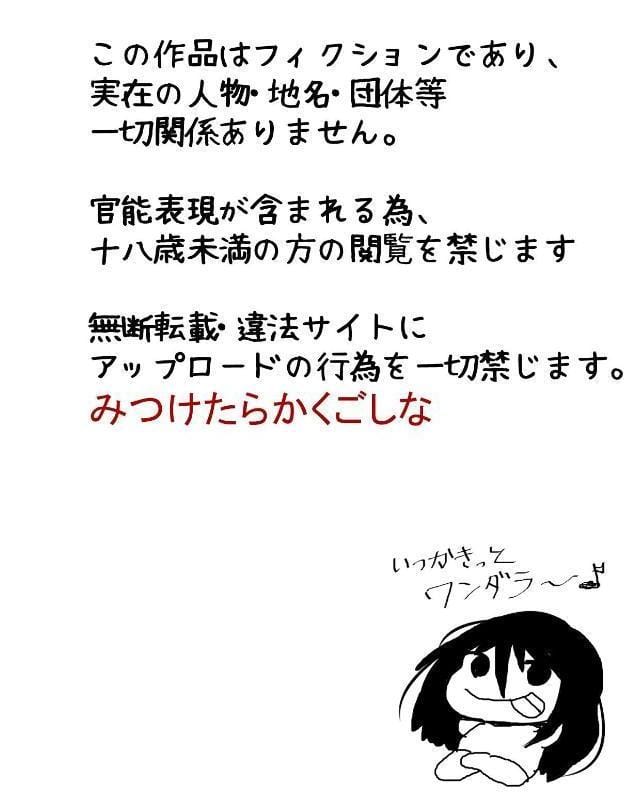 この作品はフィクションであり、
実在の人物・地名・団体等
一切関係ありません。
官能表現が含まれる為、
十八歳未満の方の閲覧を禁じます
無断転載・違法サイトに
アップロードの行為を一切禁じます。
みつけたらかくごしな
いつかきっと
ワンダラ〜♪